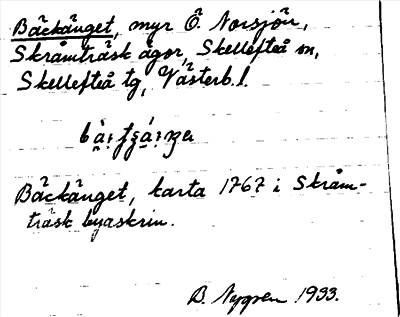 Bäckänget, myr Ö. Norsjön,
Skråmträsk ägor, Skellefteå sn,
Skellefteå tg, Västerb. l.
Bäckänget, karta 1767 i Skråm-
träsk byaskrin.
B. Nygren 1933.